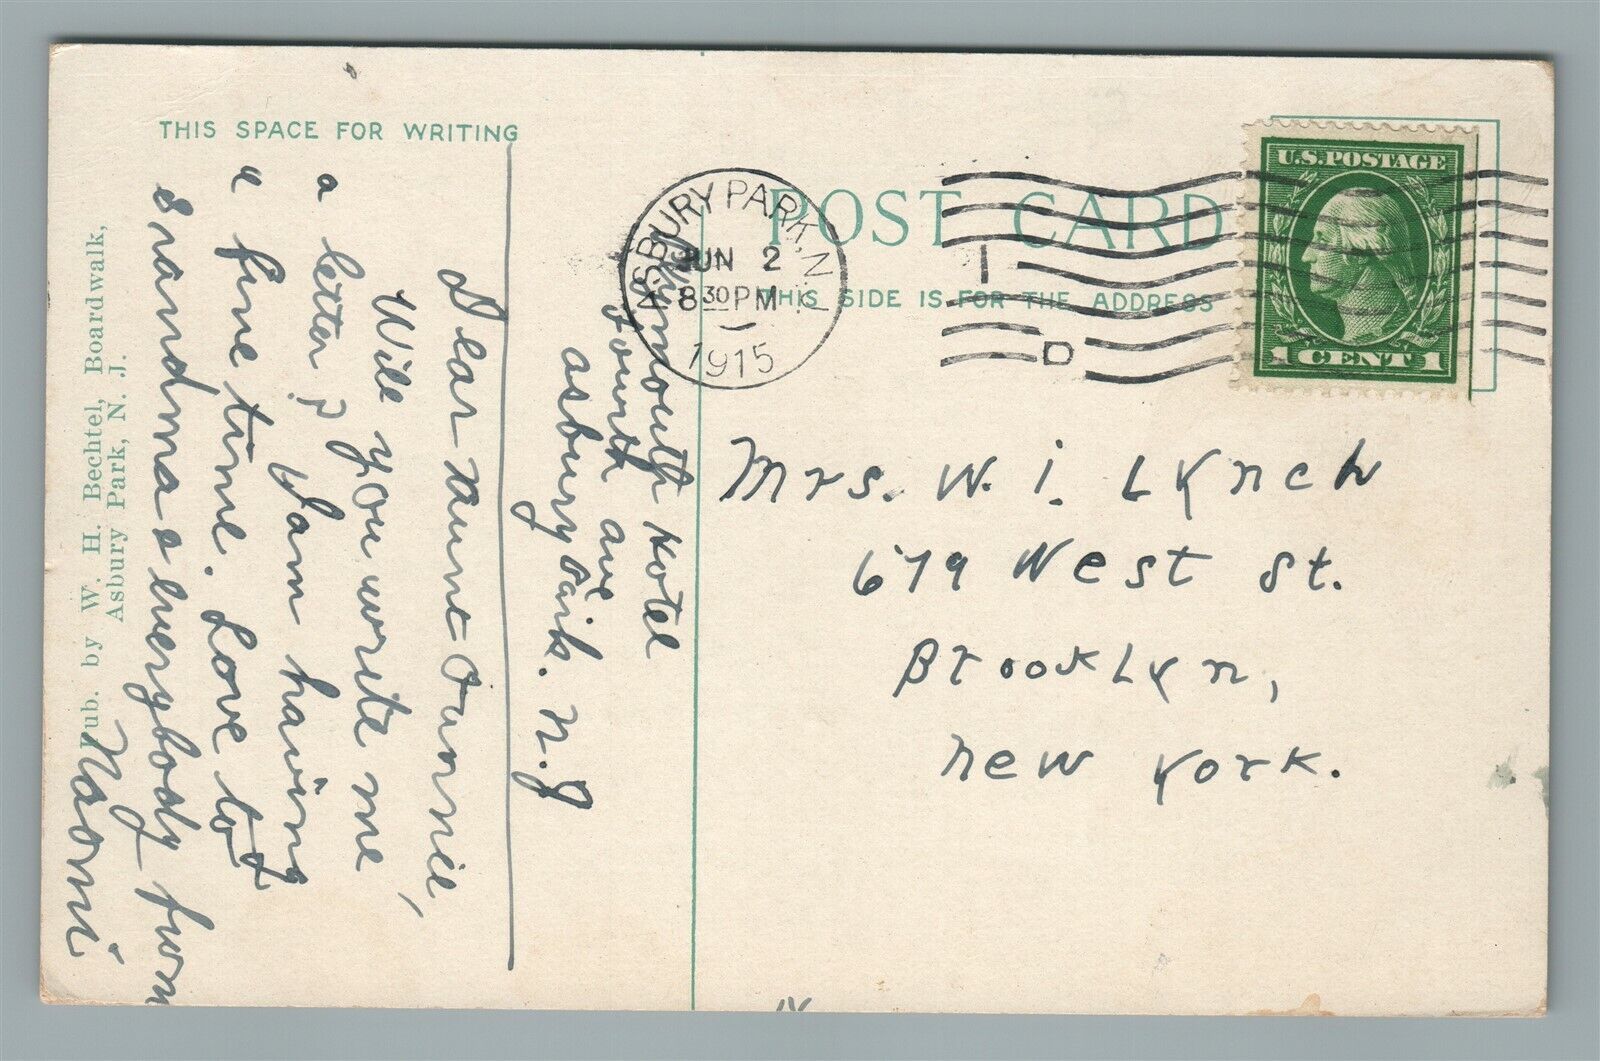 THIS SPACE FOR WRITING
POST CARD
THIS SIDE IS FOR THE ADDRESS
ASBURY PARK, N.J.
JUN 2
8 30 PM
1915
1
D
U.S. POSTAGE
1 CENT 1
Plymouth Hotel
Fourth ave
asbury Park. N.J
Dear Aunt Fannie,
Will you write me
a letter? I am having
a fine time. Love to
grandma & everybody from
Naomi
Mrs. W. I. Lynch
679 West St.
Brooklyn,
New York.
Pub. by W. H. Bechtel, Boardwalk,
Asbury Park, N. J.